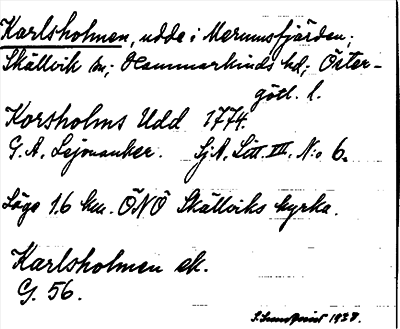 Karlsholmen, udde i Merumsfjärden;
Skällvik sn; Hammarkinds hd; Öster-
götl. l.
Korsholms Udd 1774.
G. A. Lejonanker. Sj.A. Litt. III. N:o 6.
Läge 1.6 km. ÖNÖ Skällviks kyrka.
Karlsholmen ek.
G. 56.
S. Lundquist 1928.